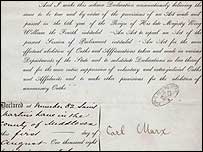 And I make this solemn Declaration conscientiously believing the
same to be true and by virtue of the provisions of an Act made and
passed in the 6th year of the Reign of His late Majesty King
William the Fourth intituled "An Act to repeal an Act of the
present Session of Parliament intituled An Act for the more
effectual abolition of Oaths and Affirmations taken and made in various
Departments of the State and to substitute Declarations in lieu thereof
and for the more entire suppression of voluntary and extrajudicial Oaths
and Affidavits and to make other provisions for the abolition of
unnecessary Oaths
Declared at
Martins Lane in the
County of Middlesex
this first day
of August One thousand eight
Carl Marx